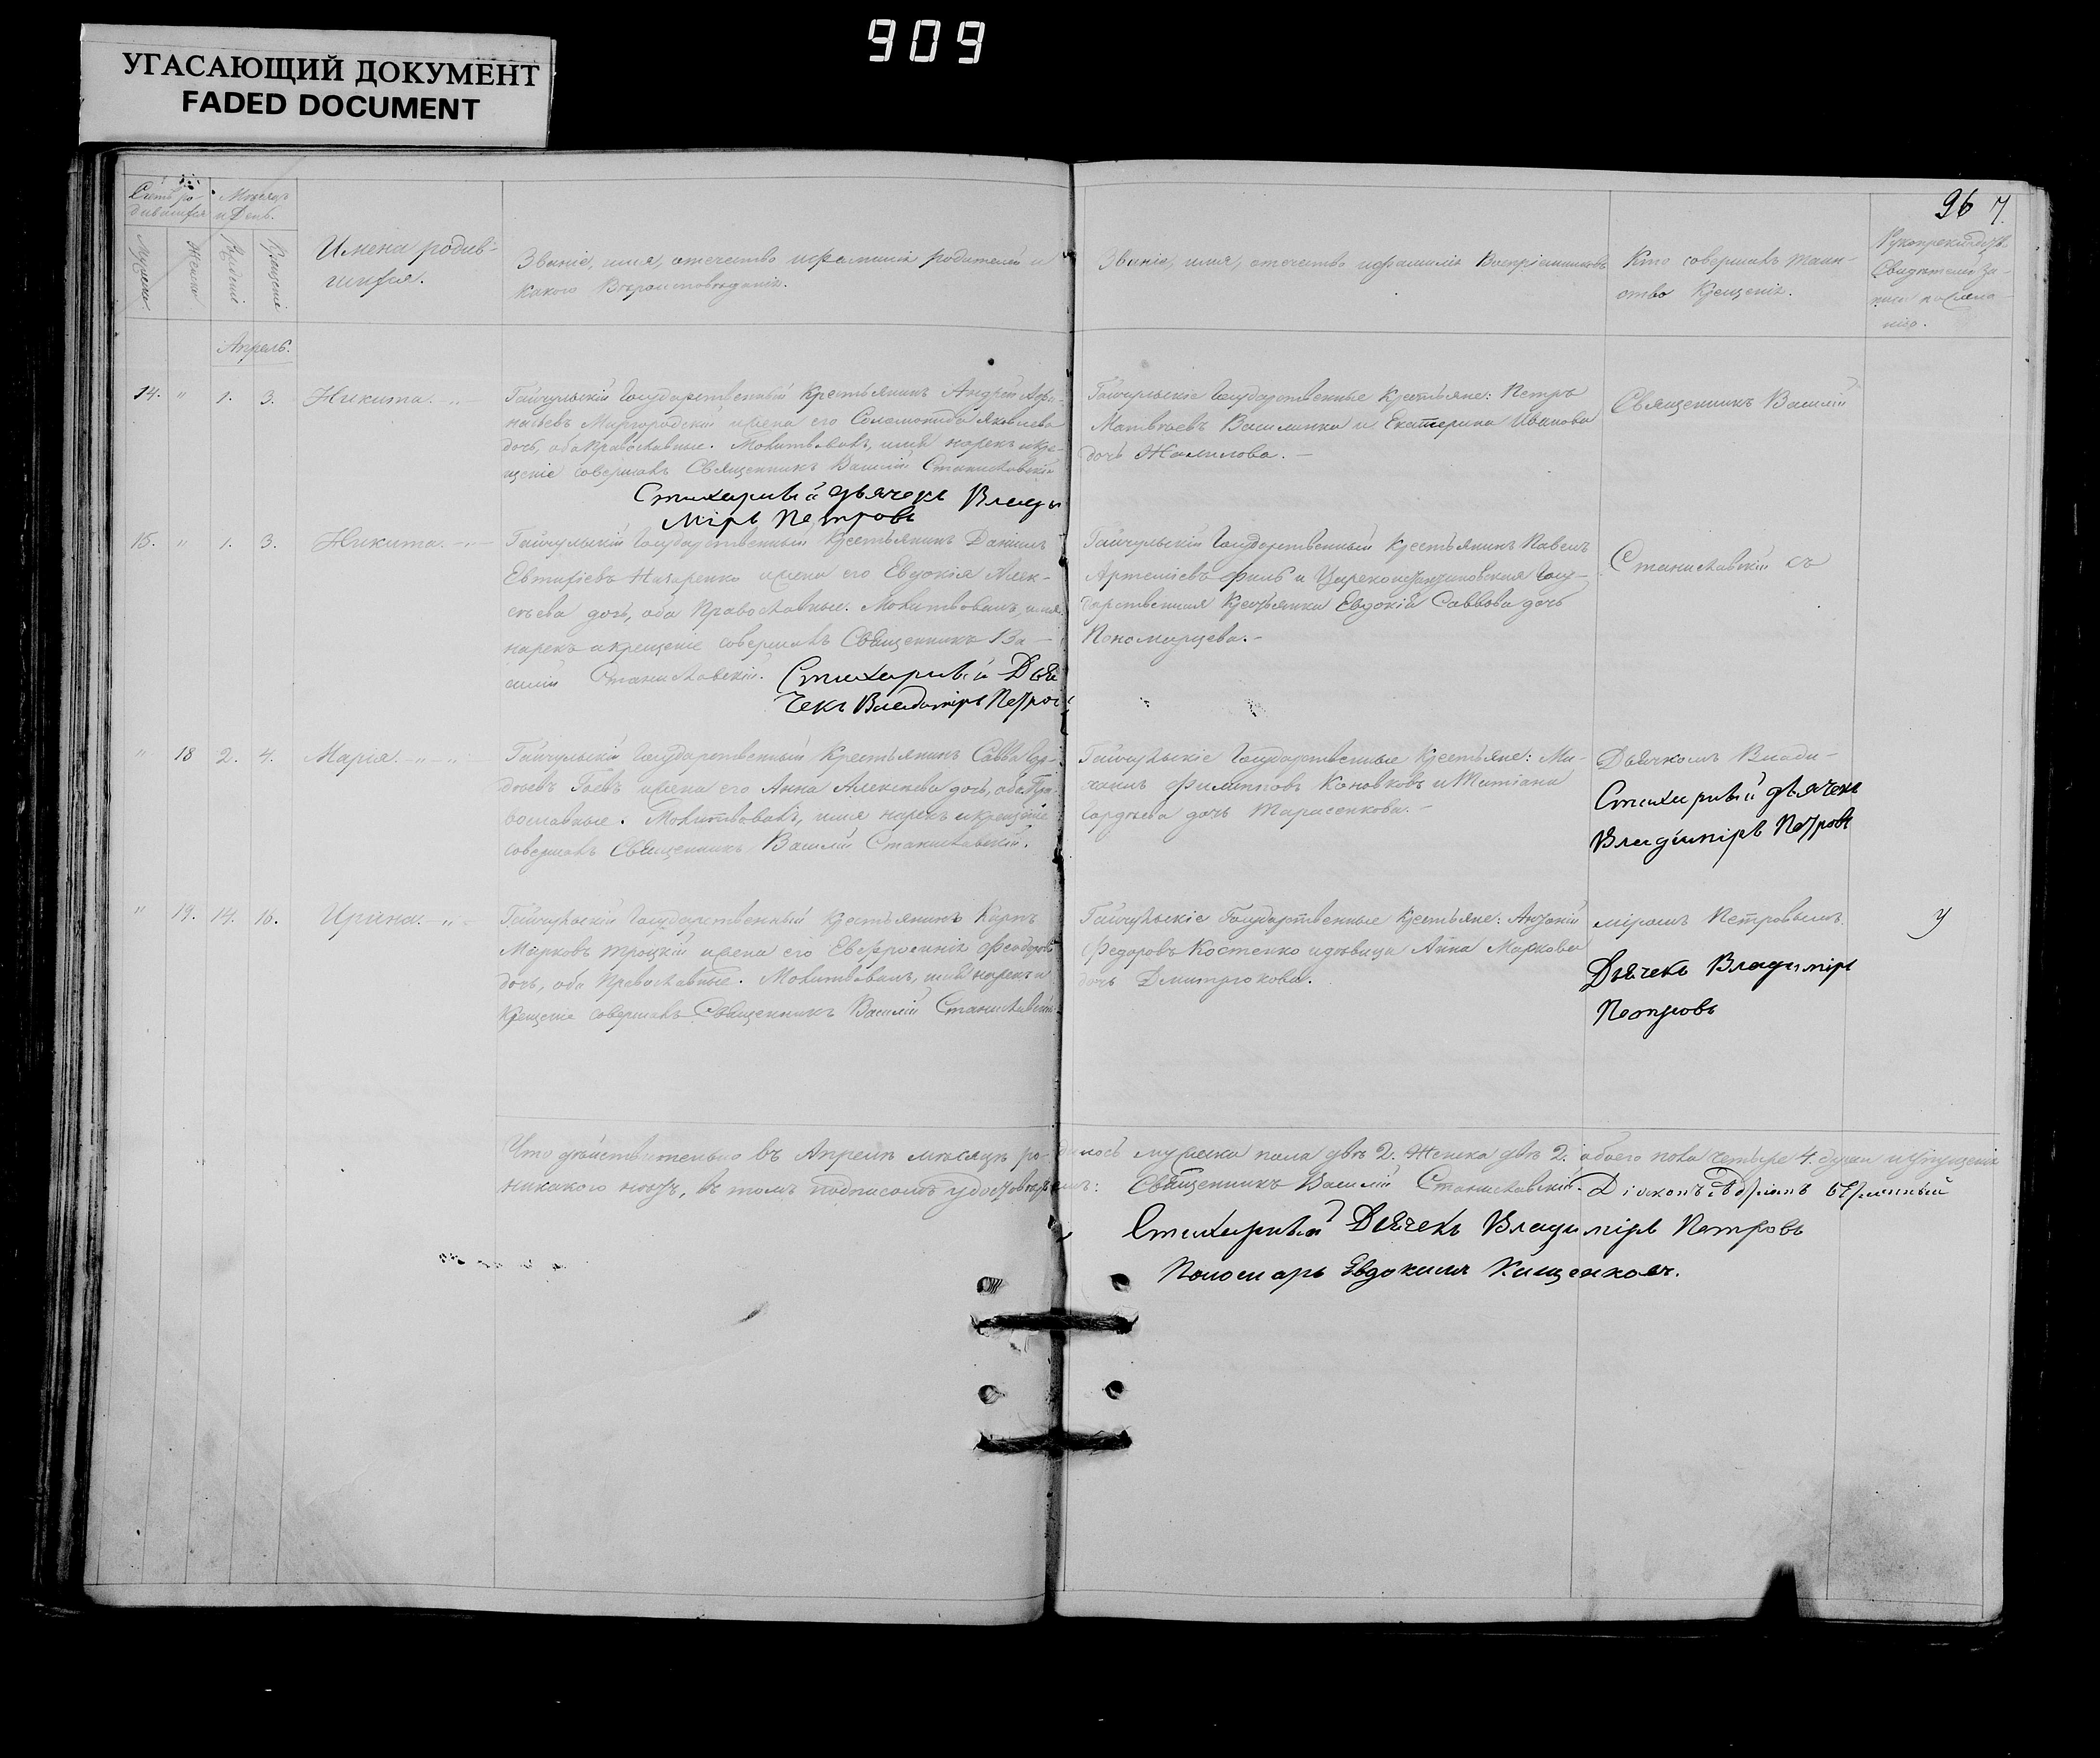 909
УГАСАЮЩИЙ ДОКУМЕНТ
FADED DOCUMENT
96 7.
Счетъ ро-
дившихся
Мѣсяцъ
и День.
Мужеска
Женска
Рожденіе
Крещеніе
Имена родив-
шихся.
Званіе, имя, отечество и фамилія родителей и
какого Вѣроисповѣданія.
Званіе, имя, отечество и фамилія Воспріемниковъ
Кто совершалъ таин-
ство Крещенія.
Свидѣтелей за-
писи по жела-
нію.
Апрель.
14. " 1. 3. Никита.
Гайчульскій Государственный Крестьянинъ Андрей
Миргородскій и жена его Соломонида Яковлева
дочь, оба Православные. Молитвовалъ, имя нарекъ и кре-
щеніе совершалъ Священникъ Василій Станиславскій
Стихарный дьячекъ Влади
міръ Петровъ
Гайчульскіе Государственные Крестьяне: Петръ
Матвѣевъ Василинка и Екатерина Иванова
дочь Жамилова.
Священникъ Василій
15. " 1. 3. Никита.
Гайчульскій Государственный Крестьянинъ Даніилъ
Евтихіевъ Назаренко и жена его Евдокія Алек-
сѣева дочь, оба Православные. Молитвовалъ, имя
нарекъ и крещеніе совершалъ Священникъ Ва-
силій Станиславскій. Стихарный Дья
чекъ Владиміръ Петровъ
Гайчульскій Государственный Крестьянинъ Павелъ
Артеміевъ Филь и Цареконстантиновская Госу-
дарственная Крестьянка Евдокія Саввова дочь
Пономарцева.
Станиславскій съ
" 18 2. 4. Марія.
Гайчульскій Государственный Крестьянинъ Савва Гор-
дѣевъ Гаевъ и жена его Анна Алексѣева дочь, оба Пра-
вославные. Молитвовалъ, имя нарекъ и крещеніе
совершалъ Священникъ Василій Станиславскій.
Гайчульскіе Государственные Крестьяне: Ми-
хаилъ Филипповъ Коновковъ и Татіана
Гордѣева дочь Тарасенкова.
Дьячкомъ Влади-
Стихарный дьячекъ
Владиміръ Петровъ
" 19. 14. 16. Ирина.
Гайчульскій Государственный Крестьянинъ Карпъ
Марковъ Троцкій и жена его Евфросинія Феодорова
дочь, оба Православные. Молитвовалъ, имя нарекъ и
Крещеніе совершалъ Священникъ Василій Станиславскій.
Гайчульскіе Государственные Крестьяне: Антоній
Федоровъ Костенко и дѣвица Анна Маркова
дочь Дмитрюкова.
міромъ Петровымъ.
Дьячекъ Владиміръ
Петровъ
Что дѣйствительно въ Апрелѣ мѣсяцѣ родилось мужеска пола два 2. Женска два 2. обоего пола четыре 4. души и упущенія
никакого нѣтъ, въ томъ подписомъ удостовѣряемъ: Священникъ Василій Станиславскій. Діаконъ
Стихарный Дьячекъ Владиміръ Петровъ
Пономарь Евдокимъ Кищенковъ.